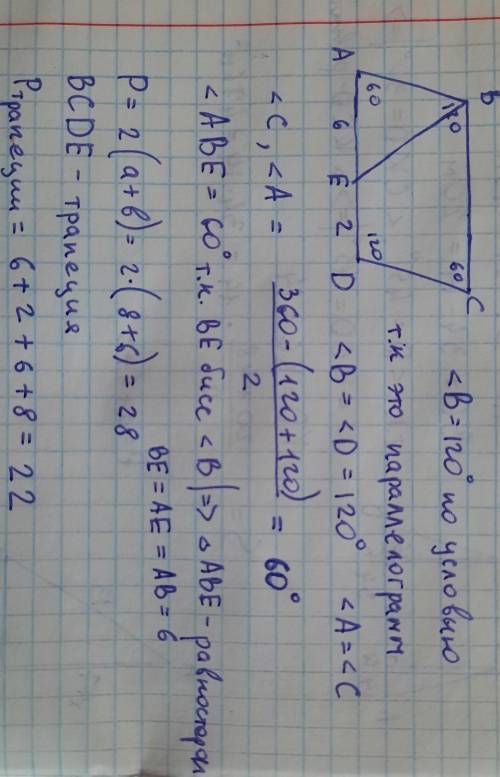 B
C
120
60
60
120
A 6 E 2 D
<B = 120° по условию
т.к это параллелограмм
<B = <D = 120° <A = <C
<C, <A = 360-(120+120) / 2 = 60°
<ABE = 60° т.к. BE бисс <B | => △ABE - равносторон
BE = AE = AB = 6
P = 2(a+b) = 2·(8+6) = 28
BCDE - трапеция
Pтрапеции = 6+2+6+8 = 22